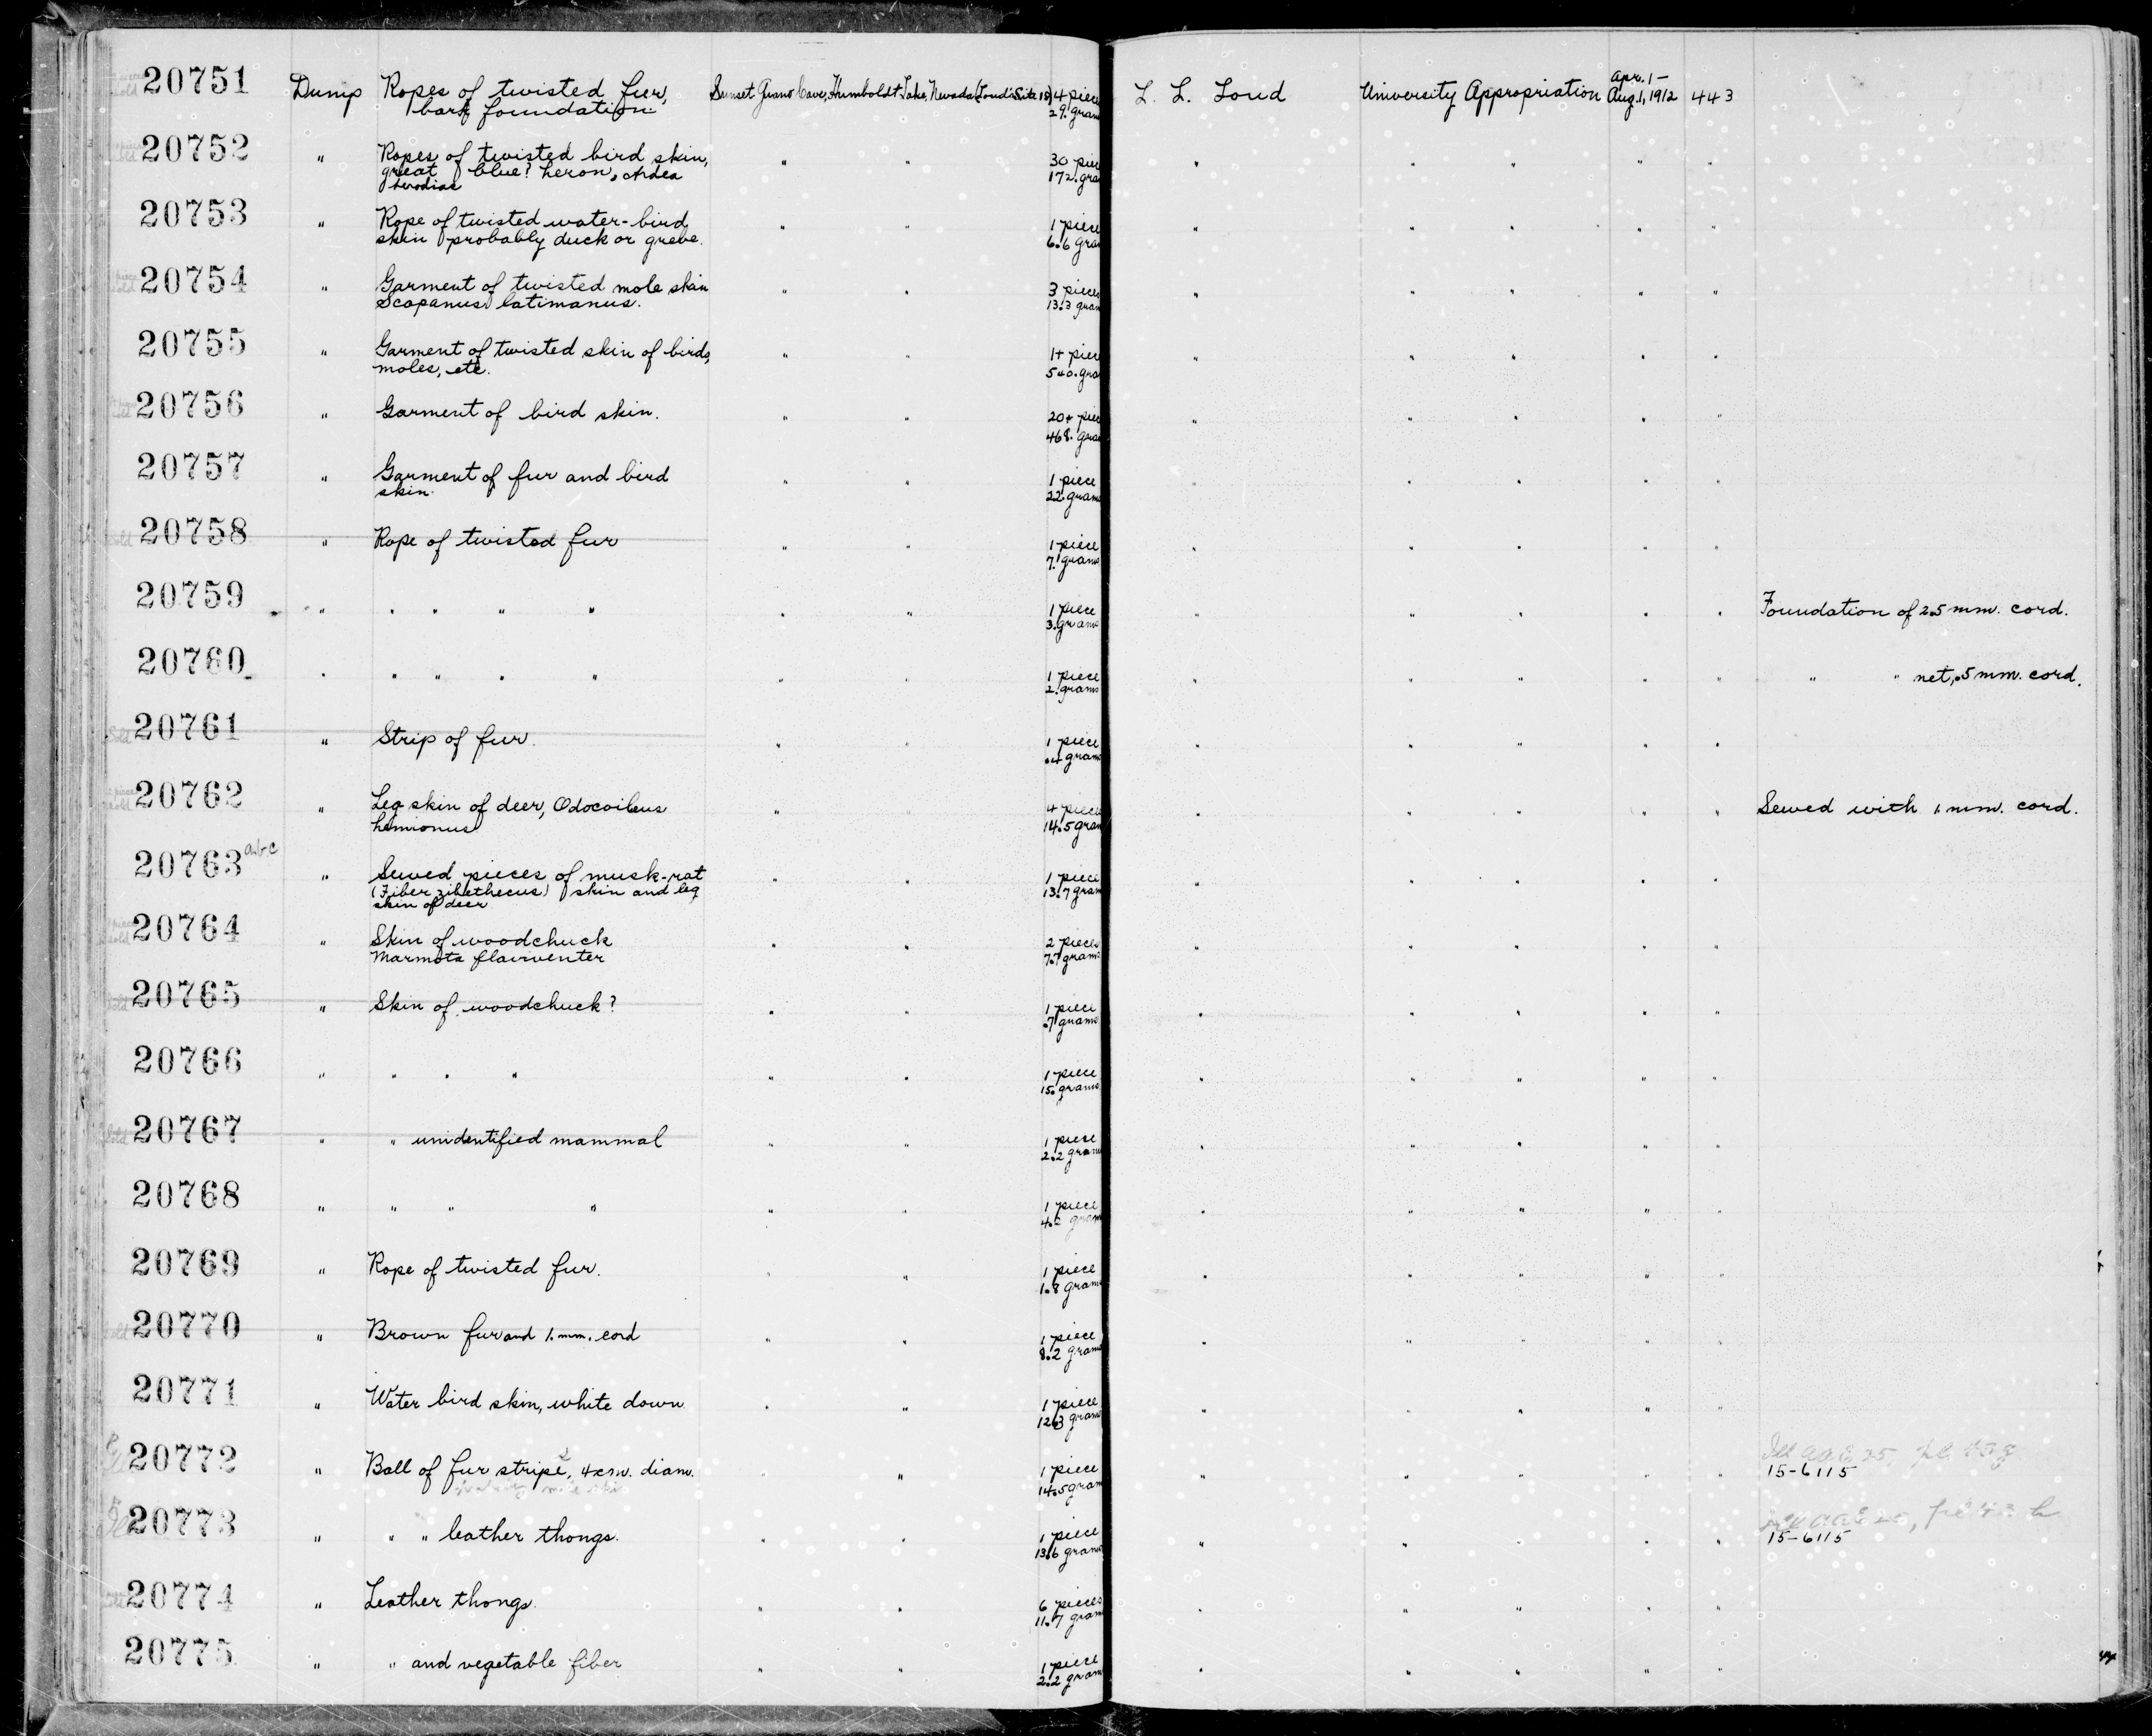 20751 Dump Ropes of twisted fur, Sunset Guano Cave, Humboldt Lake, Nevada (Loud's Site 18) 4 piece L. L. Loud University Appropriation Apr. 1- Aug. 1, 1912 443
bark foundation. 29. gram
20752 " Ropes of twisted bird skin, " " 30 piec " " " " "
great blue? heron, Ardea 172. gra
herodias
20753 " Rope of twisted water-bird " " 1 piece " " " " "
skin probably duck or grebe. 6.6 gra
20754 " Garment of twisted mole skin " " 3 pieces " " " " "
Scapanus latimanus. 13.3 gram
20755 " Garment of twisted skin of birds, " " 1+ piec " " " " "
moles, etc. 540. gra
20756 " Garment of bird skin. " " 20+ piec " " " " "
468. gram
20757 " Garment of fur and bird " " 1 piece " " " " "
skin. 22. grams
20758 " Rope of twisted fur " " 1 piece " " " " "
7. grams
20759 " " " " " " " 1 piece " " " " " Foundation of 2.5 mm. cord.
3. grams
20760 " " " " " " " 1 piece " " " " " " " net, .5 mm. cord.
2. grams
20761 " Strip of fur. " " 1 piece " " " " "
.4 grams
20762 " Leg skin of deer, Odocoileus " " 4 pieces " " " " " Sewed with 1. mm. cord.
hemionus 14.5 gram
20763 abc " Sewed pieces of musk-rat " " 1 piece " " " " "
(Fiber zibethecus) skin and leg 13.7 gram
skin of deer
20764 " Skin of woodchuck " " 2 pieces " " " " "
Marmota flaviventer 7.7 grams
20765 " Skin of woodchuck? " " 1 piece " " " " "
.7 grams
20766 " " " " " " 1 piece " " " " "
15. grams
20767 " " unidentified mammal " " 1 piece " " " " "
2.2 gram
20768 " " " " " " 1 piece " " " " "
4.2 gram
20769 " Rope of twisted fur. " " 1 piece " " " " "
1.8 gram
20770 " Brown fur and 1. mm. cord " " 1 piece " " " " "
8.2 gram
20771 " Water bird skin, white down " " 1 piece " " " " "
12.3 gram
20772 " Ball of fur strips, 4 cm. diam. " " 1 piece " " " " " 15-6115
14.5 gram
20773 " " " leather thongs. " " 1 piece " " " " " 15-6115
13.6 grams
20774 " Leather thongs. " " 6 pieces " " " " "
11.7 gram
20775 " " and vegetable fiber " " 1 piece " " " " "
2.2 gram